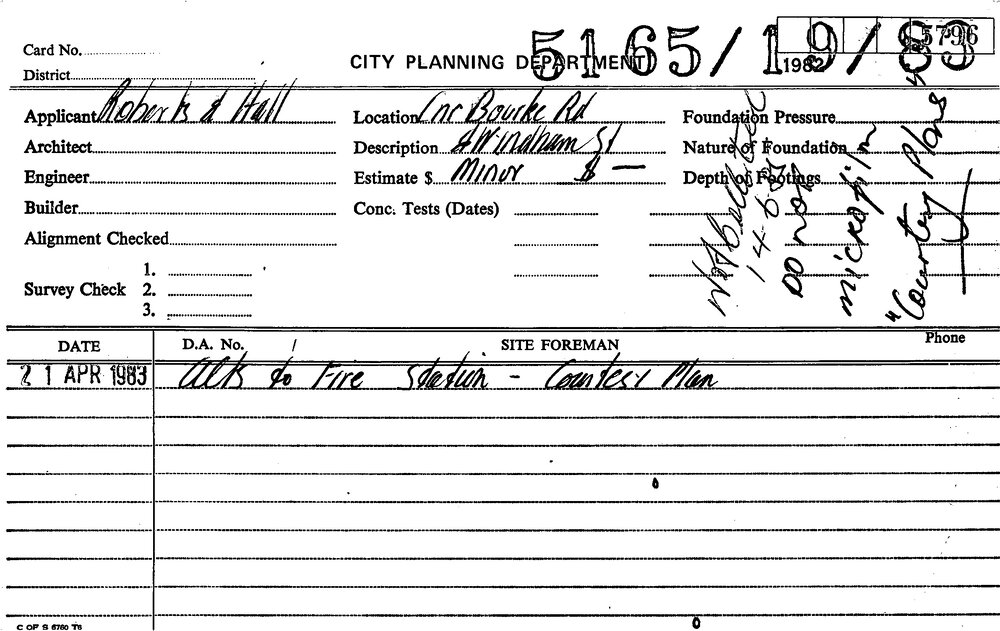 5165/19/83
5796
Card No.
CITY PLANNING DEPARTMENT
1982
District
Applicant Roberts & Hall
Location Cnr Bourke Rd
Foundation Pressure
Architect
Description & Windham St
Nature of Foundation
Engineer
Estimate $ Minor $ —
Depth of Footings
Builder
Conc. Tests (Dates)
Alignment Checked
Survey Check
1.
2.
3.
14-6-
DO not
microfilm
"Courtesy Plans"
DATE
D.A. No.
SITE FOREMAN
Phone
21 APR 1983 alts to Fire Station - Courtesy Plan
C OF S 6760 T6